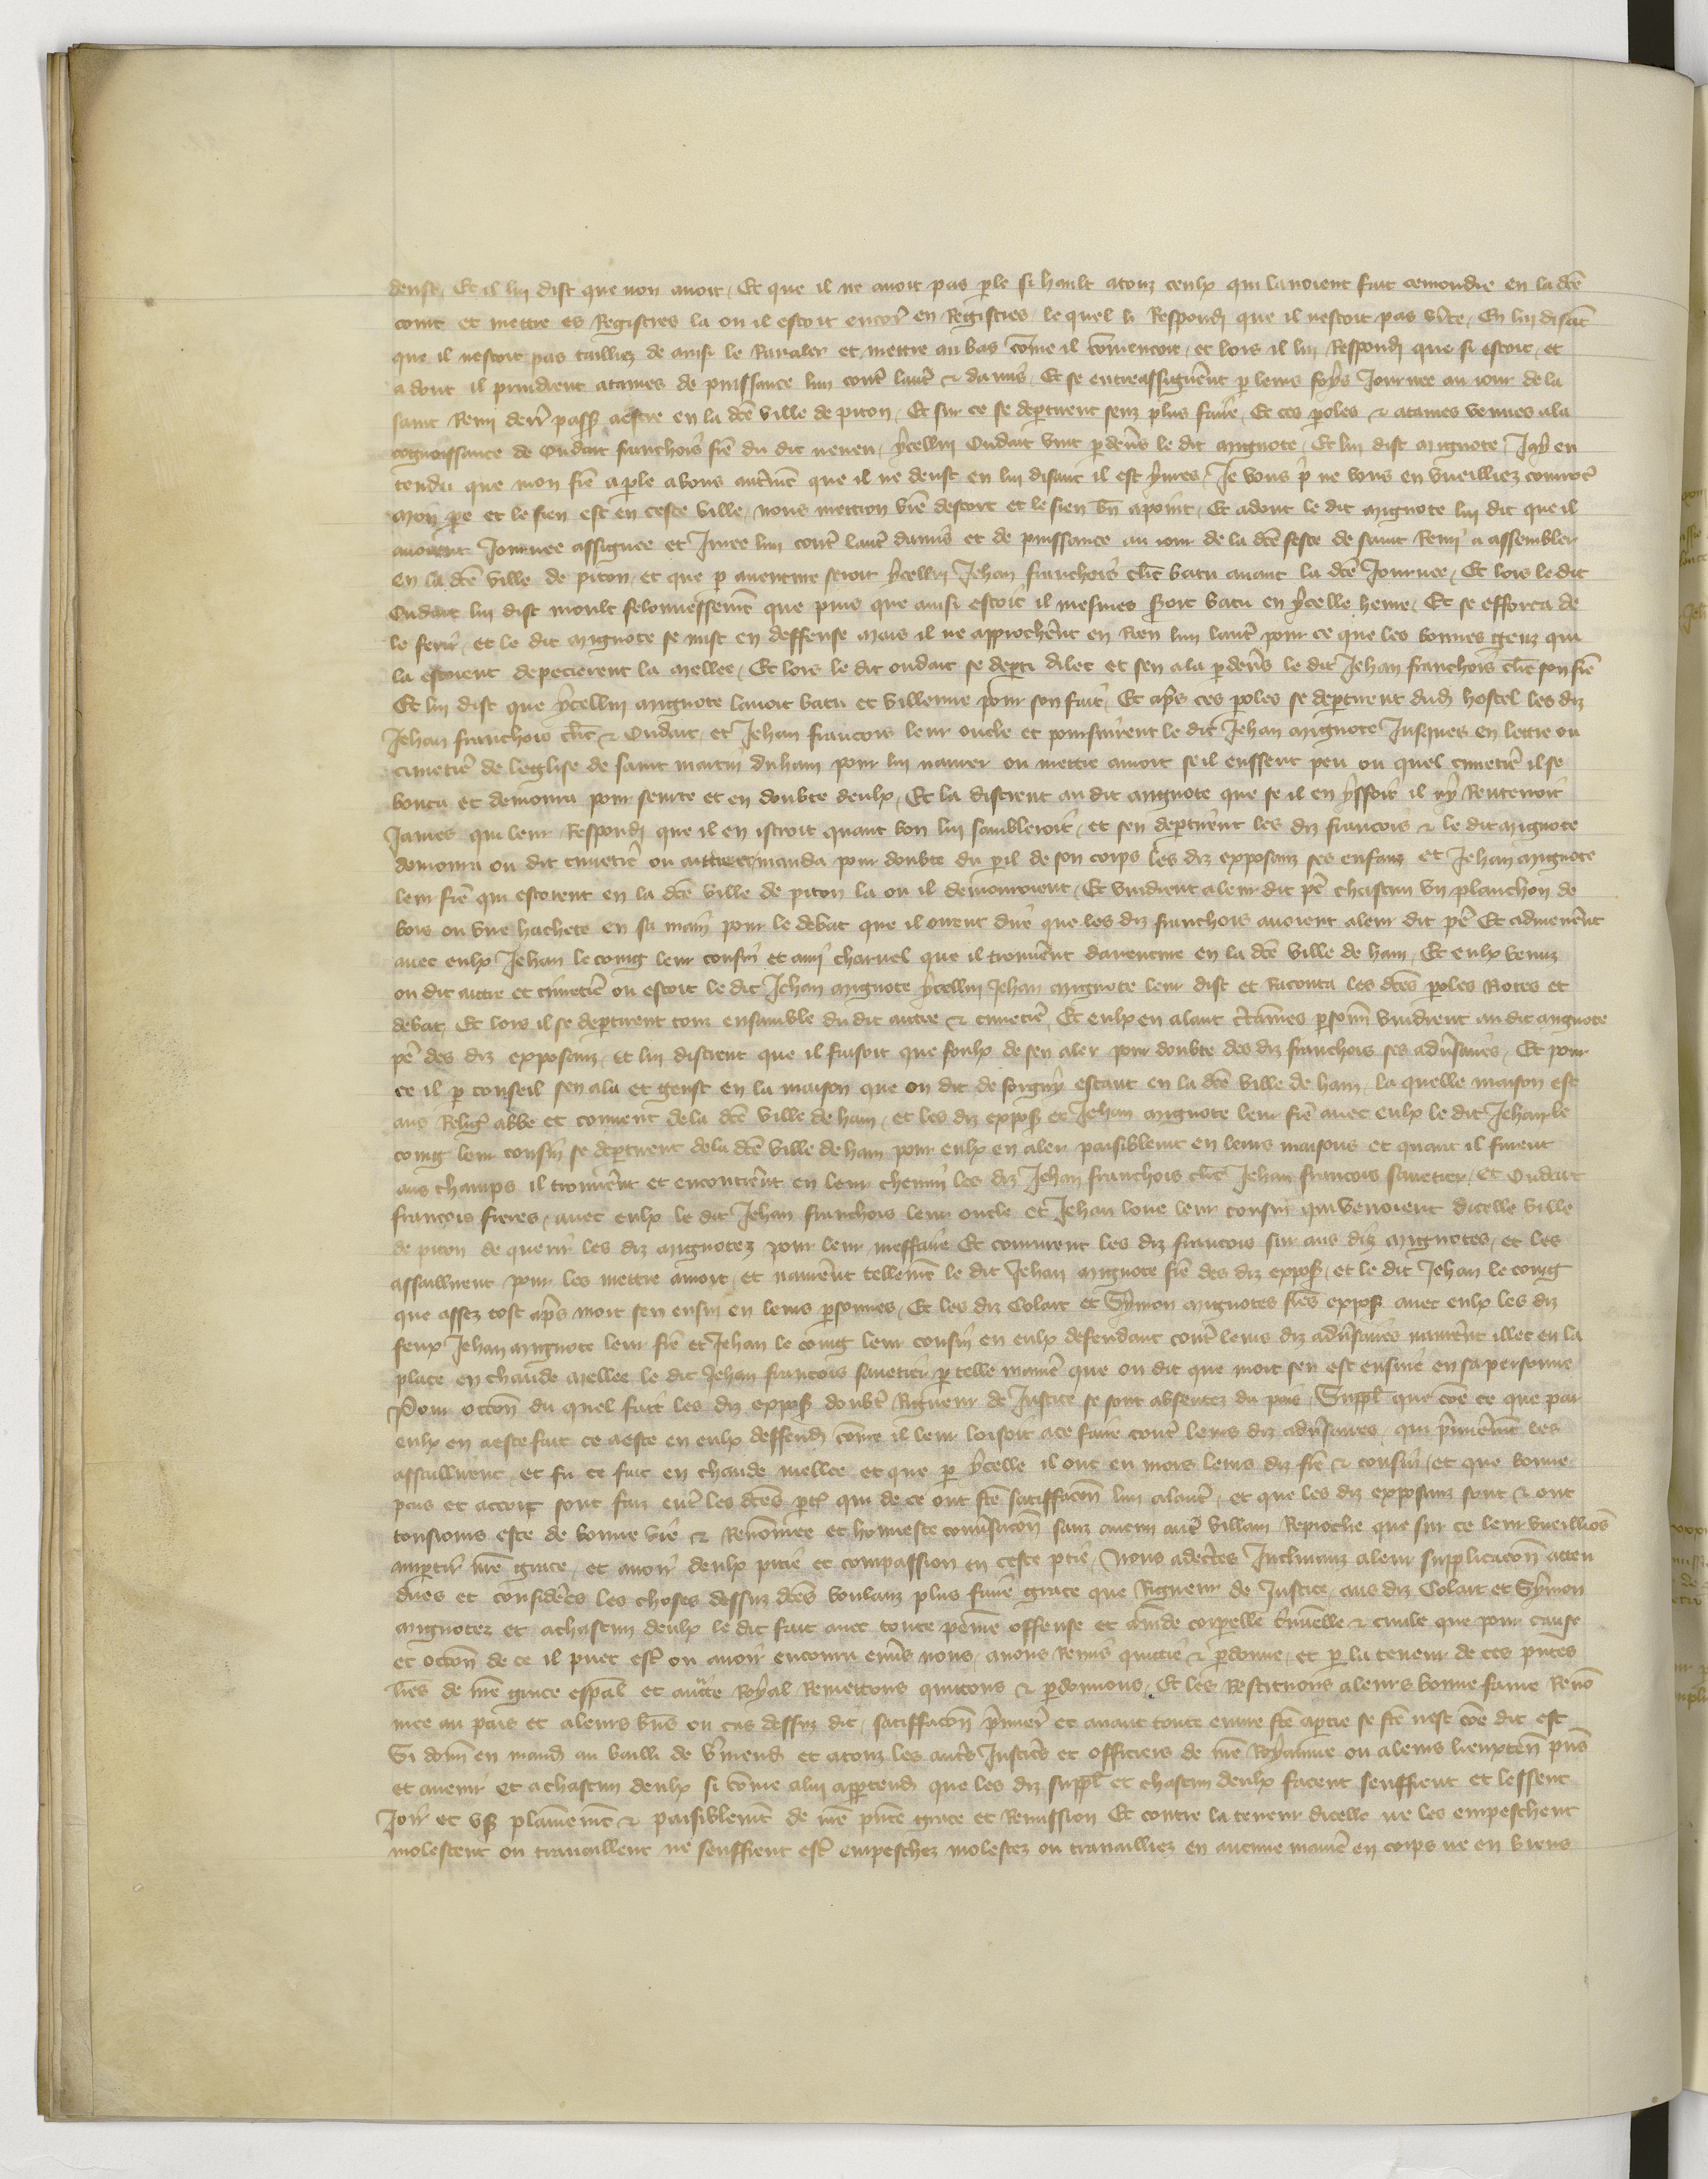 deust, Et il lui dist que non avoit, Et que il ne avoit pas ple si hault a touz ceulx qui lavoient fait semondre en la dce
court et mettre es Registres la ou il estoit encor en Registres, le quel li Respond que il nestoit pas vite, En lui disāt
que il nestoit pas tailliez de ainsi le Ravaler et mettre au bas cōme il cōmencoit, et lors il lui Respond que si estoit, et
adont il prindrent atames de puissance lun contr lautr & damis, Et se entreassignerent p leurs foys Journee au iour de la
saint Remi derr pass a estre en la dce ville de piton, Et sur ce se deptirent senz plus faire, Et ces poles & atames venues a la
cognoissance de Oudart franchois frē du dit neveu, ycellui Oudart vint p devs le dit mignote, Et lui dist mignote, Jay en
tendu que mon frē a ple a vous autremēt que il ne deust en lui disant il est yvres, Je vous p ne vous en vueilliez courrocr
mon pe et le sien est en ceste ville, nous mettron vre descort et le sien bn a point, Et adont le dit mignote lui dit que il
avoient Journee assignee et Juree lun contr lautr damis et de puissance au iour de la dce feste de saint Remi a assembler
en la dce ville de piton, et que p aventure seroit ycellui Jehan franchois clerc batu avant la dce Journee, Et lors le dit
Oudart lui dist moult felonnessemt que puis que ainsi estoit il mesmes seroit batu en ycelle heure, Et se efforca de
le ferir, et le dit mignote se mist en deffense mais il ne approchernt en Rien lun lautr pour ce que les bonnes genz qui
la estoient depecierent la mellee, Et lors le dit oudart se depti dilec et sen ala p devs le dit Jehan franchois clerc son frē
Et lui dist que ycellui mignote lavoit batu et villenne pour son fait, Et aprs ces poles se deptirent dud hostel les diz
Jehan franchois clerc & Oudart, et Jehan francois leur oncle et poursuirent le dit Jehan mignote Jusques en lettre ou
cimetire de leglise de saint martin du ham pour lui navrer ou mettre a mort se il eussent peu ou quel cimetire il se
bouta et demoura pour seurte et en doubte deulx, Et la distrent au dit mignote que se il en yssoit il ny Renterroit
James qui leur Respond que il en istroit quant bon lui sambleroit, et sen deptirent les diz francois & le dit mignote
demoura ou dit cimetire ou aittre et manda pour doubte du pil de son corps les diz exposanz ses enfanz et Jehan mignote
leur frē qui estoient en la dce ville de piton la ou il demouroient, Et vindrent a leur dit pe chascun un planchon de
bois ou une hachete en sa main pour le debat que il oirent dire que les diz franchois avoient a leur dit pe Et admenerent
avec eulx Jehan le coing leur cousin et ami charnel que il trouverent daventure en la dce ville de ham, Et eulx venuz
ou dit aittre et cimetire ou estoit le dit Jehan mignote ycellui Jehan mignote leur dist et Raconta les dces poles Rotes et
debat, Et lors il se deptirent touz ensamble du dit aittre & cimetire, Et eulx en alant certaines psonn vindrent au dit mignote
pe des diz exposanz, et lui distrent que il faisoit que foulx de sen aler pour doubte des diz franchois ses adversaires, Et pour
ce il p conseil sen ala et geust en la maison que on dit de sorgny estant en la dce ville de ham, la quelle maison est
aus Relig abbe et couvent de la dce ville de ham, et les diz expos et Jehan mignote leur frē avec eulx le dit Jehan le
coing leur cousin se deptirent de la dce ville de ham pour eulx en aler paisiblemt en leurs maisons et quant il furent
aus champs il trouverent et encontrernt en leur chemin les diz Jehan franchois clerc Jehan francois savetier, et Oudart
francois freres, avec eulx le dit Jehan franchois leur oncle et Jehan loue leur cousin qui venoient dicelle ville
de piton de querir les diz mignotez pour leur meffaire Et coururent les diz francois sur aus diz mignotes, et les
assaillirent pour les mettre a mort, et navrernt tellemt le dit Jehan mignote frē des diz expos, et le dit Jehan le coing
que assez tost aprs mort sen ensui en leurs psonnes, Et les diz Colart et Symon mignotes frēs expos avec eulx les diz
feux Jehan mignote leur frē et Jehan le coing leur cousin en eulx defendant contr leurs diz adversaires navrernt illec en la
place en chaude mellee le dit Jehan francois savetier p telle manie que on dit que mort sen est ensuie en sa personne
Pour occon du quel fait les diz expos doubtr Rigueur de Justice se sont absentez du pais, Suppl que cōe ce que par
eulx en a este fait ce a este en eulx deffend cōme il leur loisoit a ce faire contr leurs diz adversaires, qui pmieremt les
assaillirent et fu ce fait en chaude mellee et que p ycelle il ont eu mors leurs diz frē & cousin, et que bonne
pais et accort sont faiz entr les dces pties qui de ce ont fte satisffacon lun a lautr, et que les diz exposanz sont & ont
tousiours este de bonne vie & Renōmee et honneste conversacon sanz aucun autr villain Reproche que sur ce leur vueillios
impartir nre grace, et avoir deulx pitie et compassion en ceste ptie, Nous adcertes Inclinanz a leur supplicacon atten
dues et considerees les choses dessuz dces voulanz plus faire grace que Rigueur de Justice, aus diz Colart et Symon
mignotez et a chascun deulx le dit fait avec toute peine offense et amde corpelle criminelle & civile que pour cause
et occon de ce il puet estr ou avoir encouru envs nous, avons Remis quittie & pdonne, et p la teneur de ces pntes
lres de nre grace espal et auctte Royal Remettons quittons & pdonnons, Et les Restituons a leurs bonne fame Renō
mee au pais et a leurs bns ou cas dessuz dit, satisffacon pmier et avant toute euvre fte a ptie se fte nest cōe dit est
Si donn en mand au bailli de vmend et a touz les autrs Justicrs et officiers de nre Royaume ou a leurs lieuxten pns
et avenir et a chascun deulx si cōme a lui apptend que les diz suppl et chascun deulx facent seuffrent et lessent
Joir et us plainemt & paisiblemt de nre pnte grace et Remission Et contre la teneur dicelle ne les empeschent
molestent ou travaillent ne seuffrent estr empeschez molestez ou travailliez en aucune manie en corps ne en biens